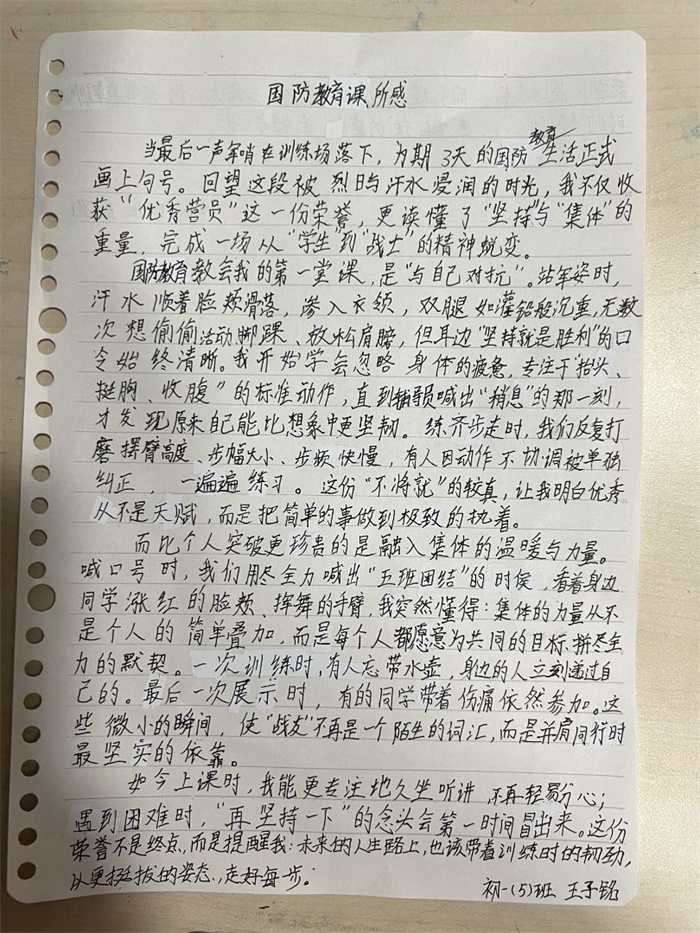 国防教育课所感
当最后一声军哨在训练场落下，为期3天的国防教育生活正式
画上句号。回望这段被烈日与汗水浸润的时光，我不仅收
获“优秀营员”这一份荣誉，更读懂了“坚持”与“集体”的
重量，完成一场从“学生”到“战士”的精神蜕变。
国防教育教会我的第一堂课，是“与自己对抗”。站军姿时，
汗水顺着脸颊滑落，渗入衣领，双腿如灌铅般沉重，无数
次想偷偷活动脚踝、放松肩膀，但耳边“坚持就是胜利”的口
令始终清晰。我开始学会忽略身体的疲惫，专注于“抬头、
挺胸、收腹”的标准动作，直到辅导员喊出“稍息”的那一刻，
才发现原来自己能比想象中更坚韧。练齐步走时，我们反复打
磨摆臂高度、步幅大小、步频快慢，有人因动作不协调被单独
纠正，一遍遍练习。这份“不将就”的较真，让我明白优秀
从不是天赋，而是把简单的事做到极致的执着。
而比个人突破更珍贵的是融入集体的温暖与力量。
喊口号时，我们用尽全力喊出“五班团结”的时候，看着身边
同学涨红的脸颊、挥舞的手臂，我突然懂得：集体的力量从不
是个人的简单叠加，而是每个人都愿意为共同的目标拼尽全
力的默契。一次训练时，有人忘带水壶，身边的人立刻递过自
己的。最后一次展示时，有的同学带着伤痛依然参加。这
些微小的瞬间，使“战友”不再是一个陌生的词汇，而是并肩同行时
最坚实的依靠。
如今上课时，我能更专注地久坐听讲，不再轻易分心；
遇到困难时，“再坚持一下”的念头会第一时间冒出来。这份
荣誉不是终点，而是提醒我：未来的人生路上，也该带着训练时的韧劲，
以更挺拔的姿态，走好每一步。
初一(5)班 王子铭